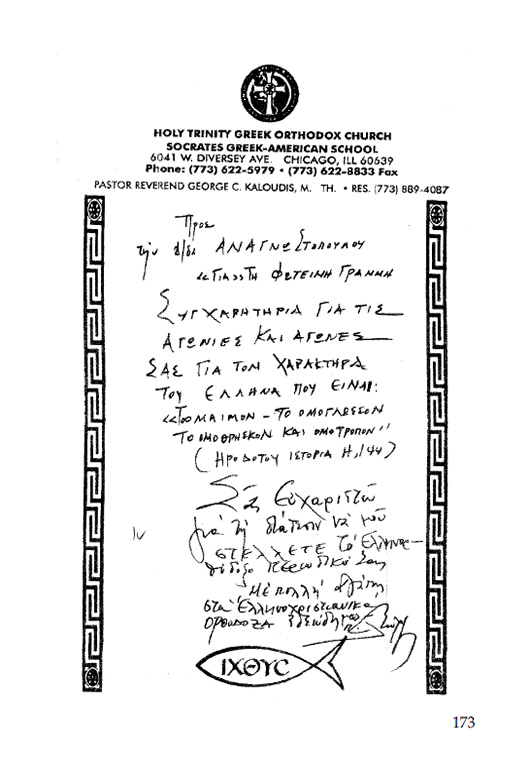 HOLY TRINITY GREEK ORTHODOX CHURCH
SOCRATES GREEK-AMERICAN SCHOOL
6041 W. DIVERSEY AVE. CHICAGO, ILL 60639
Phone: (773) 622-5979 • (773) 622-8833 Fax
PASTOR REVEREND GEORGE C. KALOUDIS, M. TH. • RES. (773) 889-4087
Προς
την Δ/δα ΑΝΑΓΝΩΣΤΟΠΟΥΛΟΥ
ΦΩΤΕΙΝΗ ΓΡΑΜΜΗ
ΣΥΓΧΑΡΗΤΗΡΙΑ ΓΙΑ ΤΙΣ
ΑΓΩΝΙΕΣ ΚΑΙ ΑΓΩΝΕΣ
ΣΑΣ ΓΙΑ ΤΟΝ ΧΑΡΑΚΤΗΡΑ
ΤΟΥ ΕΛΛΗΝΑ ΠΟΥ ΕΙΝΑΙ:
«ΤΟ ΟΜΑΙΜΟΝ - ΤΟ ΟΜΟΓΛΩΣΣΟΝ
ΤΟ ΟΜΟΘΡΗΣΚΟΝ ΚΑΙ ΟΜΟΤΡΟΠΟΝ"
(ΗΡΟΔΟΤΟΥ ΙΣΤΟΡΙΑ Η, 144)
Σᾶς Εὐχαριστῶ
γιά τή νά μοῦ
ΣΤΕΛΧΕΤΕ τό Ἑλληνο-
Περιοδικό Σας
Μέ πολλή ἀγάπη
στά Ἑλληνοχριστιανικά
ΟΡΘΟΔΟΞΑ
ΙΧΘΥC
173